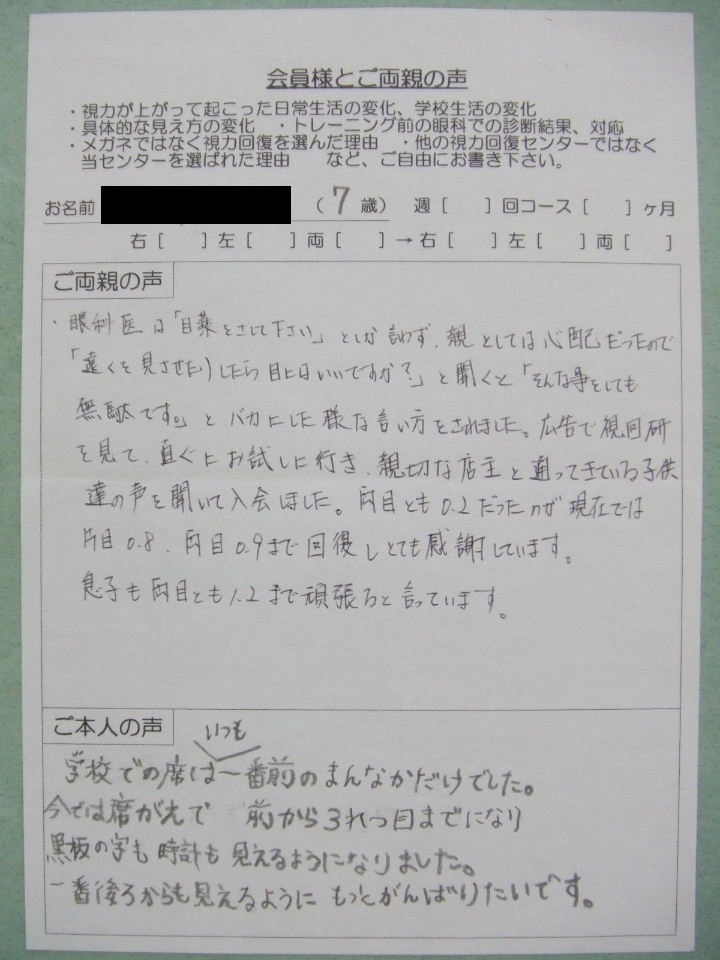 会員様とご両親の声
・視力が上がって起こった日常生活の変化、学校生活の変化
・具体的な見え方の変化 ・トレーニング前の眼科での診断結果、対応
・メガネではなく視力回復を選んだ理由 ・他の視力回復センターではなく
当センターを選ばれた理由 など、ご自由にお書き下さい。
お名前 （7歳） 週［ ］回コース［ ］ヶ月
右［ ］左［ ］両［ ］→右［ ］左［ ］両［ ］
ご両親の声
・眼科医は「目薬をさして下さい」としか言わず、親としては心配だったので
「遠くを見させたりしたら目にはいいですか？」と聞くと「そんな事をしても
無駄です。」とバカにした様な言い方をされました。広告で視回研
を見て、直ぐにお試しに行き、親切な店主と通ってきている子供
達の声を聞いて入会しました。両目とも0.2だったのが現在では
片目0.8、両目0.9まで回復しとても感謝しています。
息子も両目とも1.2まで頑張ると言っています。
ご本人の声
いつも
学校での席は一番前のまんなかだけでした。
今では席がえで 前から3れつ目までになり
黒板の字も時計も見えるようになりました。
一番後ろからも見えるように もっとがんばりたいです。